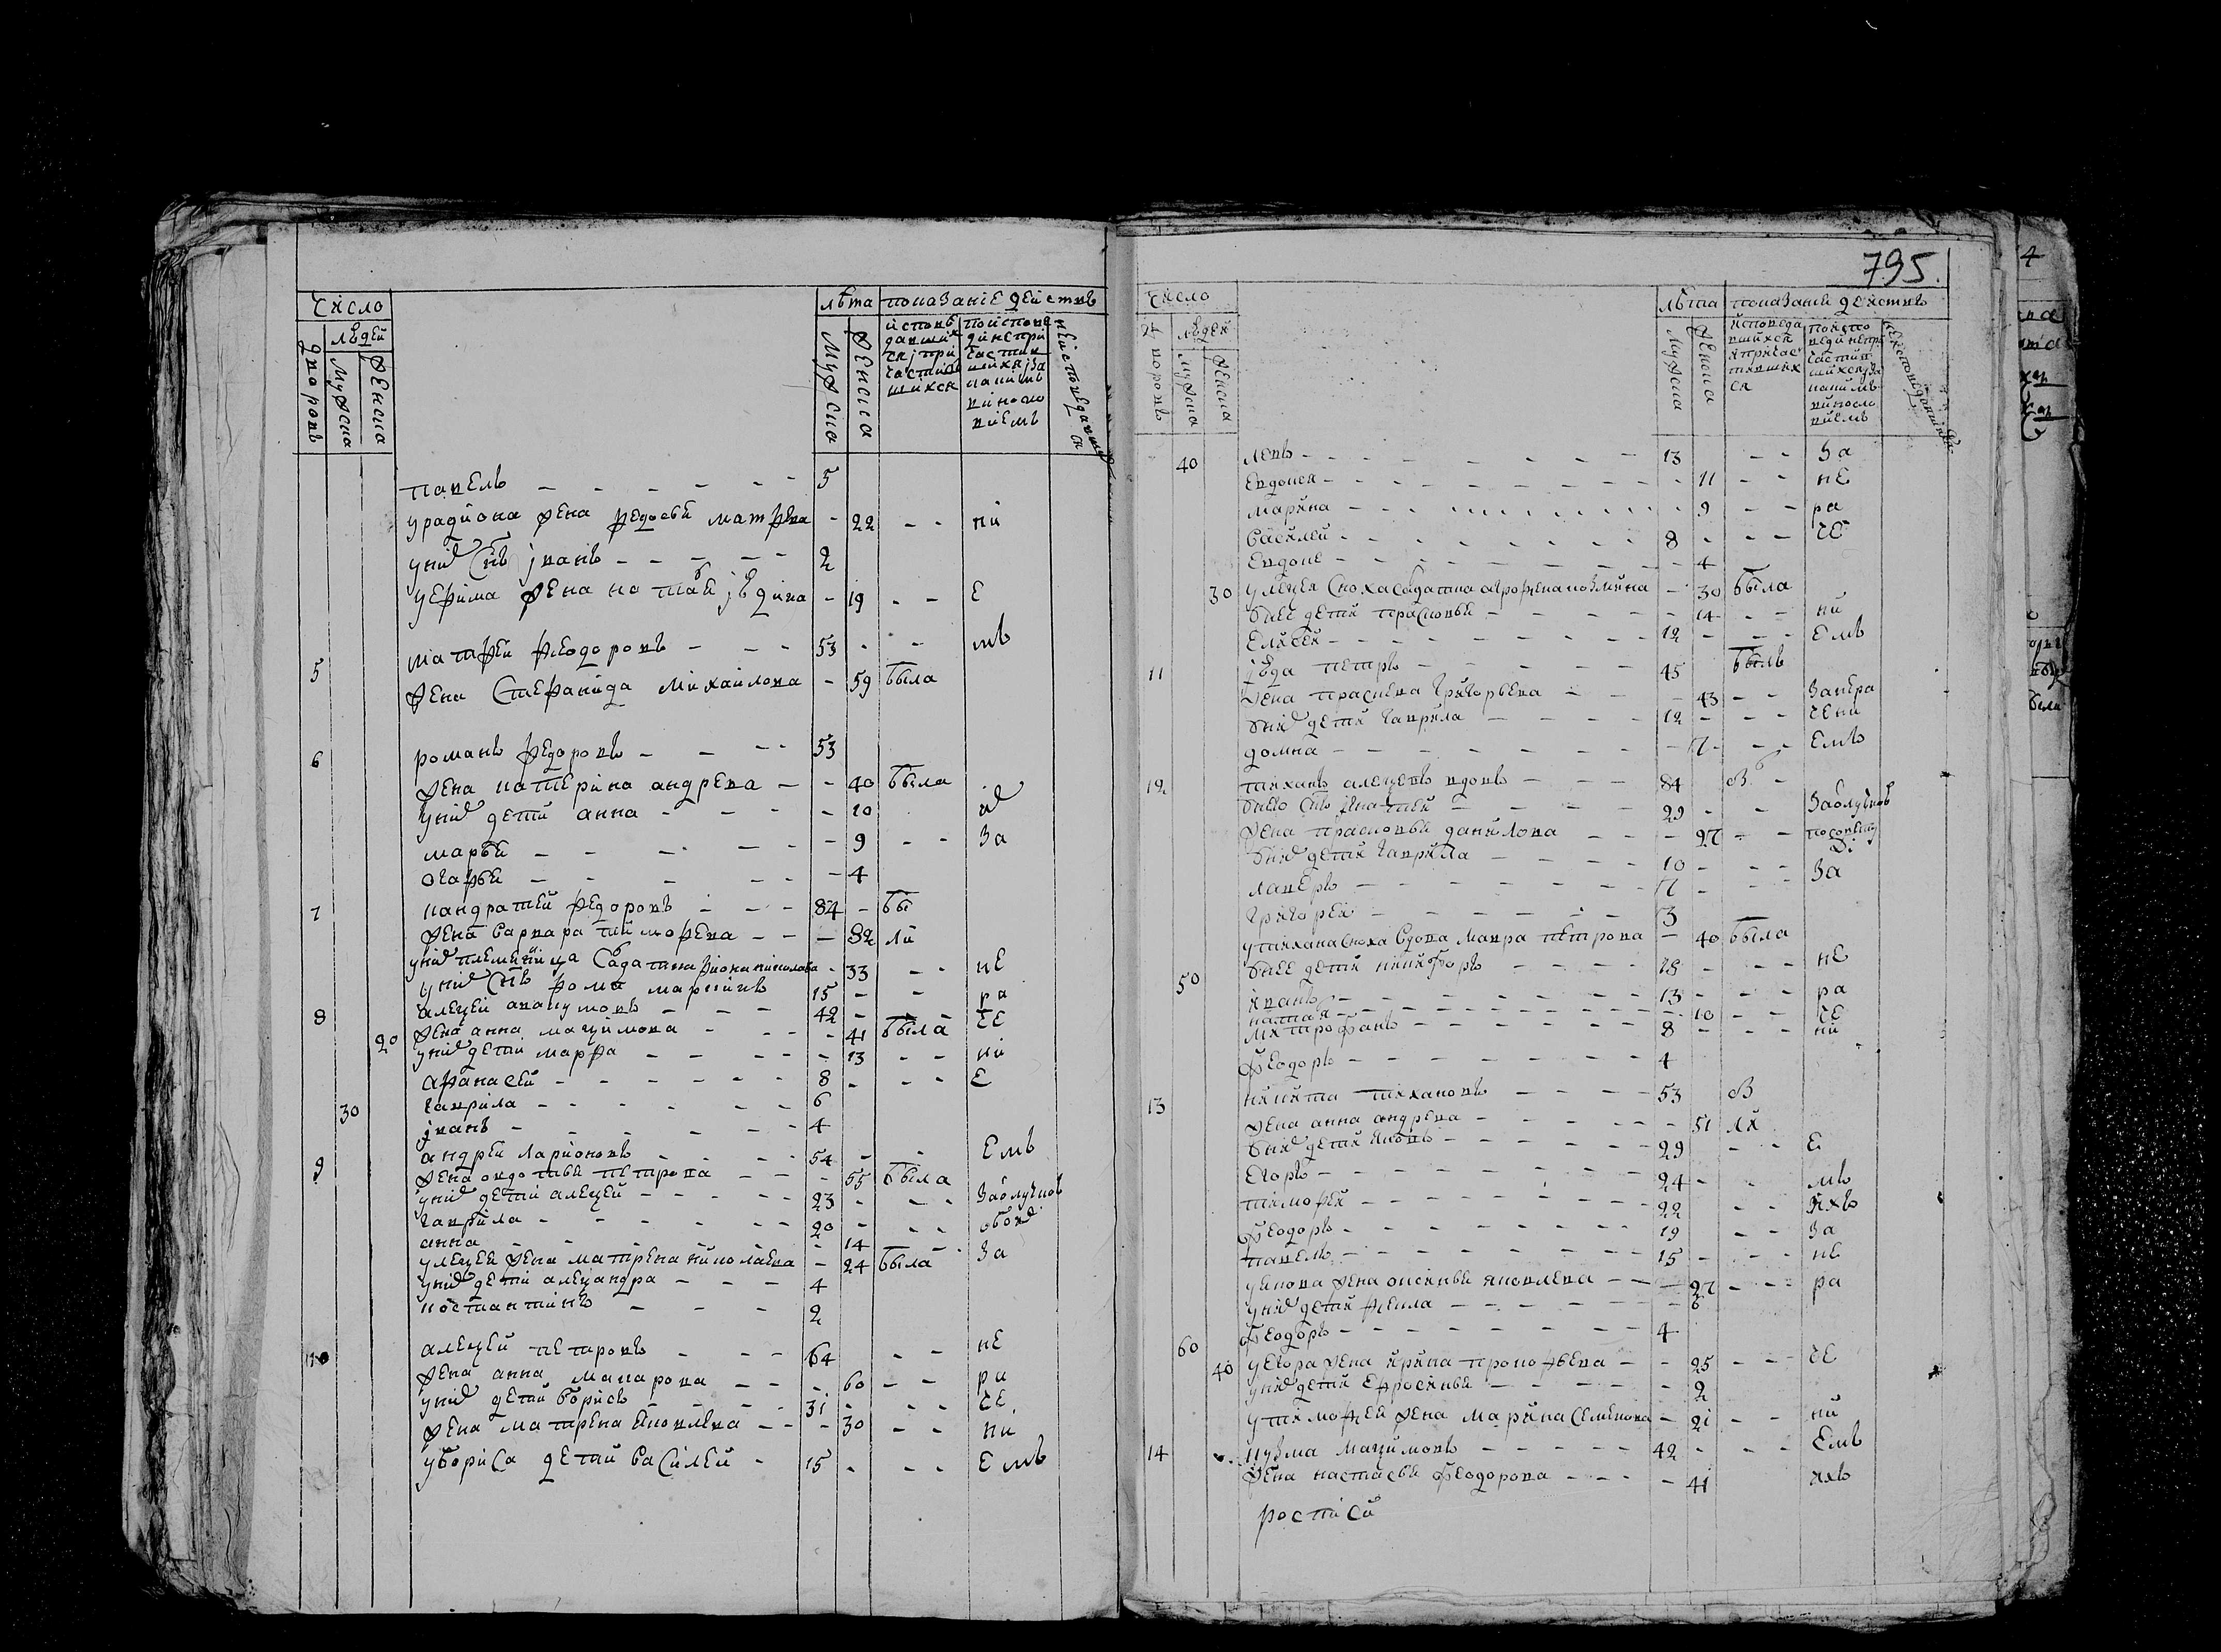 Число
лѣта показаніе действъ
людей
дворовъ
мужска
женска
мужска
женска
исповѣ
давших
ся и при
частив
шихся
по испове
ди не при
частив
шихся и за
каким
винасло
виемъ
не исповедавших
павелъ - - - - - - 5
у радиона жена федосьи матфева - 22 - - ни
у них снъ иванъ - - - - - 2
у ефима жена 19 - - е
5 матфей феодоровъ - - - 53 - - мъ
жена стефанида михайлова - 59 была
6 романъ федоровъ - - - - 53
жена катерина андрева - - 40 была
у них дети анна - - - - 10 их
марья - - - - - - 9 - - за
агафья - - - - - - 4
7 кандратей федоровъ - - - 84 - бы
жена варвара тимофева - - - 82 ли
у них племянница салдатка николаева - 33 - - не
у них снъ фома 15 - - ра
8 алексей авакумовъ - - - 42 - - че
20 жена анна максимова - - - - 41 была
у них дети марфа - - - - - 13 - - ни
афанасей - - - - - - 8 - - - е
30 гаврила - - - - - - 6
иванъ - - - - - - 4
9 андрей ларионовъ - - - - 54 - - емъ
жена авдотья петрова - - - 55 была
у них дети алексей - - - - - 23 - - - заблужнов
гаврила - - - - - - 20 - - - обоих
анна - - - - - - 14
у алексея жена матрена николаева - 24 была за
у них дети александра - - - 4
костантинъ - - - 2
10 алексей петровъ - - - 64 - - не
жена анна макарова - - - 60 - - ра
у них дети борисъ 31 - - - че
жена матрена яковлева - - - 30 - - ни
у бориса дети василей - 15 - - - емъ
795.
Число
лѣта показание действъ
дворовъ
людей
мужска
женска
мужска
женска
исповеда
вшихся
и причас
тивших
ся
по испо
веди не при
частив
шихся и за
каким
винасло
виемъ
не исповедавшихся
40 левъ - - - - - - - 13 - - за
евдокея - - - - - - - - 11 - - не
марина - - - - - - - 9 - - ра
василей - - - - - - - 8 - - - че
евдоке - - - - - - - - 4
30 у алексея сноха салдатка агрофена козмина - 30 была
у нее дети прасковья - - - - - 14 - - ни
елисей - - - - - - - 12 - - - емъ
11 петръ - - - - - - 45 былъ
жена праскева григорьева - - - 43 - - за нера
у них дети гаврила - - - - 12 - - - чени
домна - - - - - - - 7 - - - емъ
12 тиханъ алексевъ вдовъ - - - 84
у него снъ игнатей - - - - 29 - - заблужнов
жена прасковья данилова - - - 27 - - по совету
у них дети гаврила - - - - 10 - - - за
лаверъ - - - - - - - 7 - - -
григорей - - - - - - 3
у тихана сноха вдова мавра петрова - 40 была
50 у нее дети никифоръ - - - - 18 - - - не
иванъ - - - - - - - 13 - - - ра
- - - - - - - 10 - - че
митрофанъ - - - - - - 8 - - - ни
феодоръ - - - - - - - 4
13 никита тихановъ - - - - 53
жена анна андрева - - - - - 51 ли
у них дети яковъ - - - - - 29 - - е
егоръ - - - - - - - 24 - - мъ
тимофей - - - - - - - 22 - - ихъ
феодоръ - - - - - - - 19 - - за
павелъ - - - - - - - 15 - - - не
у якова жена аксинья яковлева - - - 27 - - - ра
у них дети фекла - - - - - - 6
60 феодоръ - - - - - - - 4
40 у егора жена ирина прокофьева - - 25 - - - че
у них дети ефросинья - - - - - 2
у тимофея жена марина семенова - 21 - - ни
14 кузма максимовъ - - - - - 42 - - - емъ
жена настасья феодорова - - - - 41 ихъ
росписи